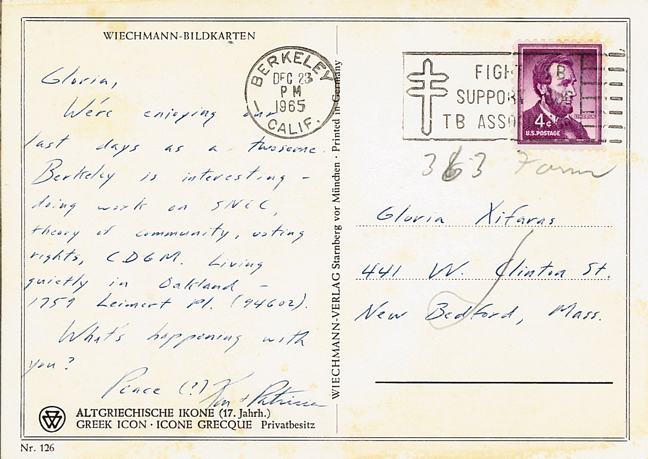 WIECHMANN-BILDKARTEN
Gloria,
We're enjoying our
last days as a twosome.
Berkeley is interesting -
doing work on SNCC,
theory of community, voting
rights, CDGM. Living
quietly in Oakland -
1759 Leimert Pl. (94602).
What's happening with
you?
Peace (?) Ken + Patricia
ALTGRIECHISCHE IKONE (17. Jahrh.)
GREEK ICON · ICONE GRECQUE Privatbesitz
Nr. 126
WIECHMANN-VERLAG Starnberg vor München · Printed in Germany
BERKELEY
DEC 23
PM
1965
CALIF.
FIGHT TB
SUPPORT
TB ASSO
4¢
U.S. POSTAGE
363 Form
Gloria Xifaras
441 W. Clinton St.
New Bedford, Mass.